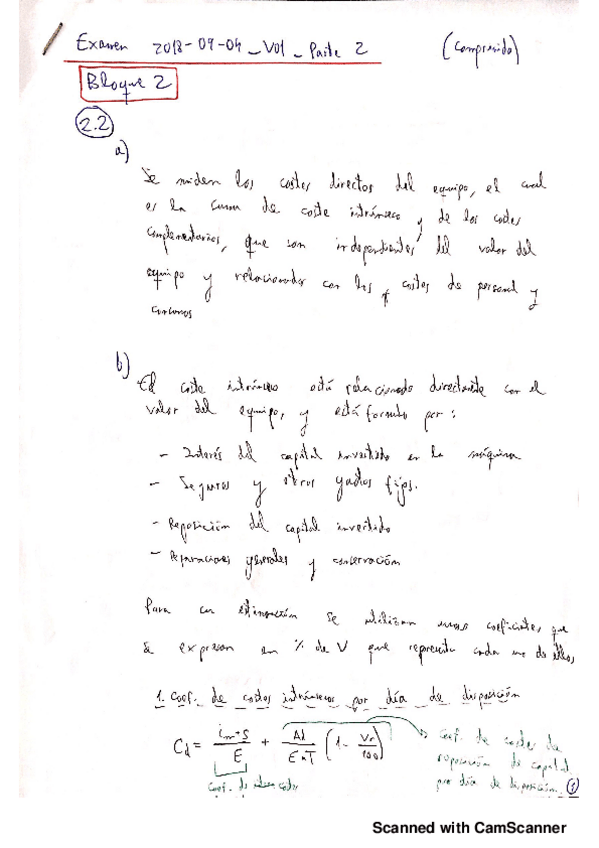 Examen 2018-09-04_V01_Parte 2 (Comprimido)
Bloque 2
2.2
a)
Se miden los costes directos del equipo, el cual
es la suma de coste intrínseco y de los costes
complementarios, que son independientes del valor del
equipo y relacionados con los costes de personal y
consumos
b)
El coste intrínseco está relacionado directamente con el
valor del equipo, y está formado por:
- Interés del capital invertido en la máquina
- Seguros y otros gastos fijos.
- Reposición del capital invertido
- Reparaciones generales y conservación
Para su estimación se utilizan unos coeficientes, que
se expresan en % de V que representa cada uno de ellos
1. Coef. de costes intrínsecos por día de disposición
Cd = (im+s)/E + Ad/(E*T) (1 - Vr/100)
Coef. de costes de
reposición de capital
por día de disposición.
Coef. de
1
Scanned with CamScanner